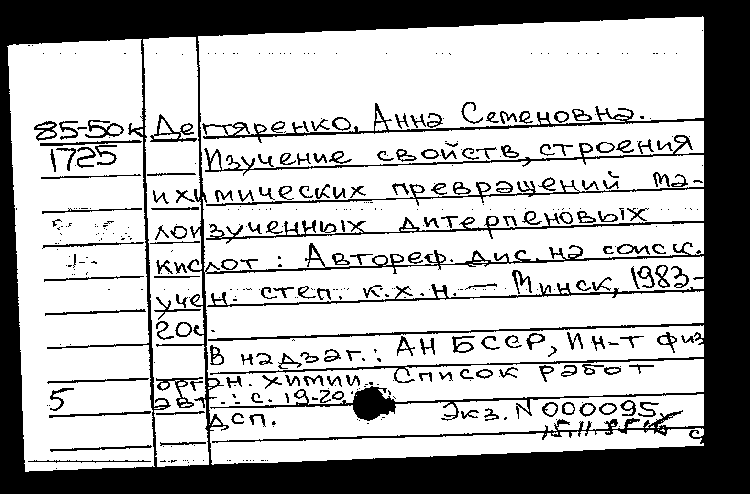 85-50к Дегтяренко, Анна Семеновна.
1725 Изучение свойств, строения
и химических превращений ма-
лоизученных дитерпеновых
кислот : Автореф. дис. на соиск.
учен. степ. к.х.н. — Минск, 1983.-
20с.
В надзаг.: АН БССР, Ин-т физ
орган. химии. Список работ
5 авт.: с. 19-20.
ДСП. Экз. N 000095.
15.11.85